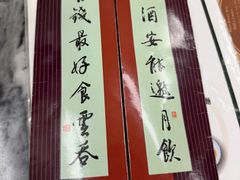 酒安能邀月飲
錢最好食雲吞